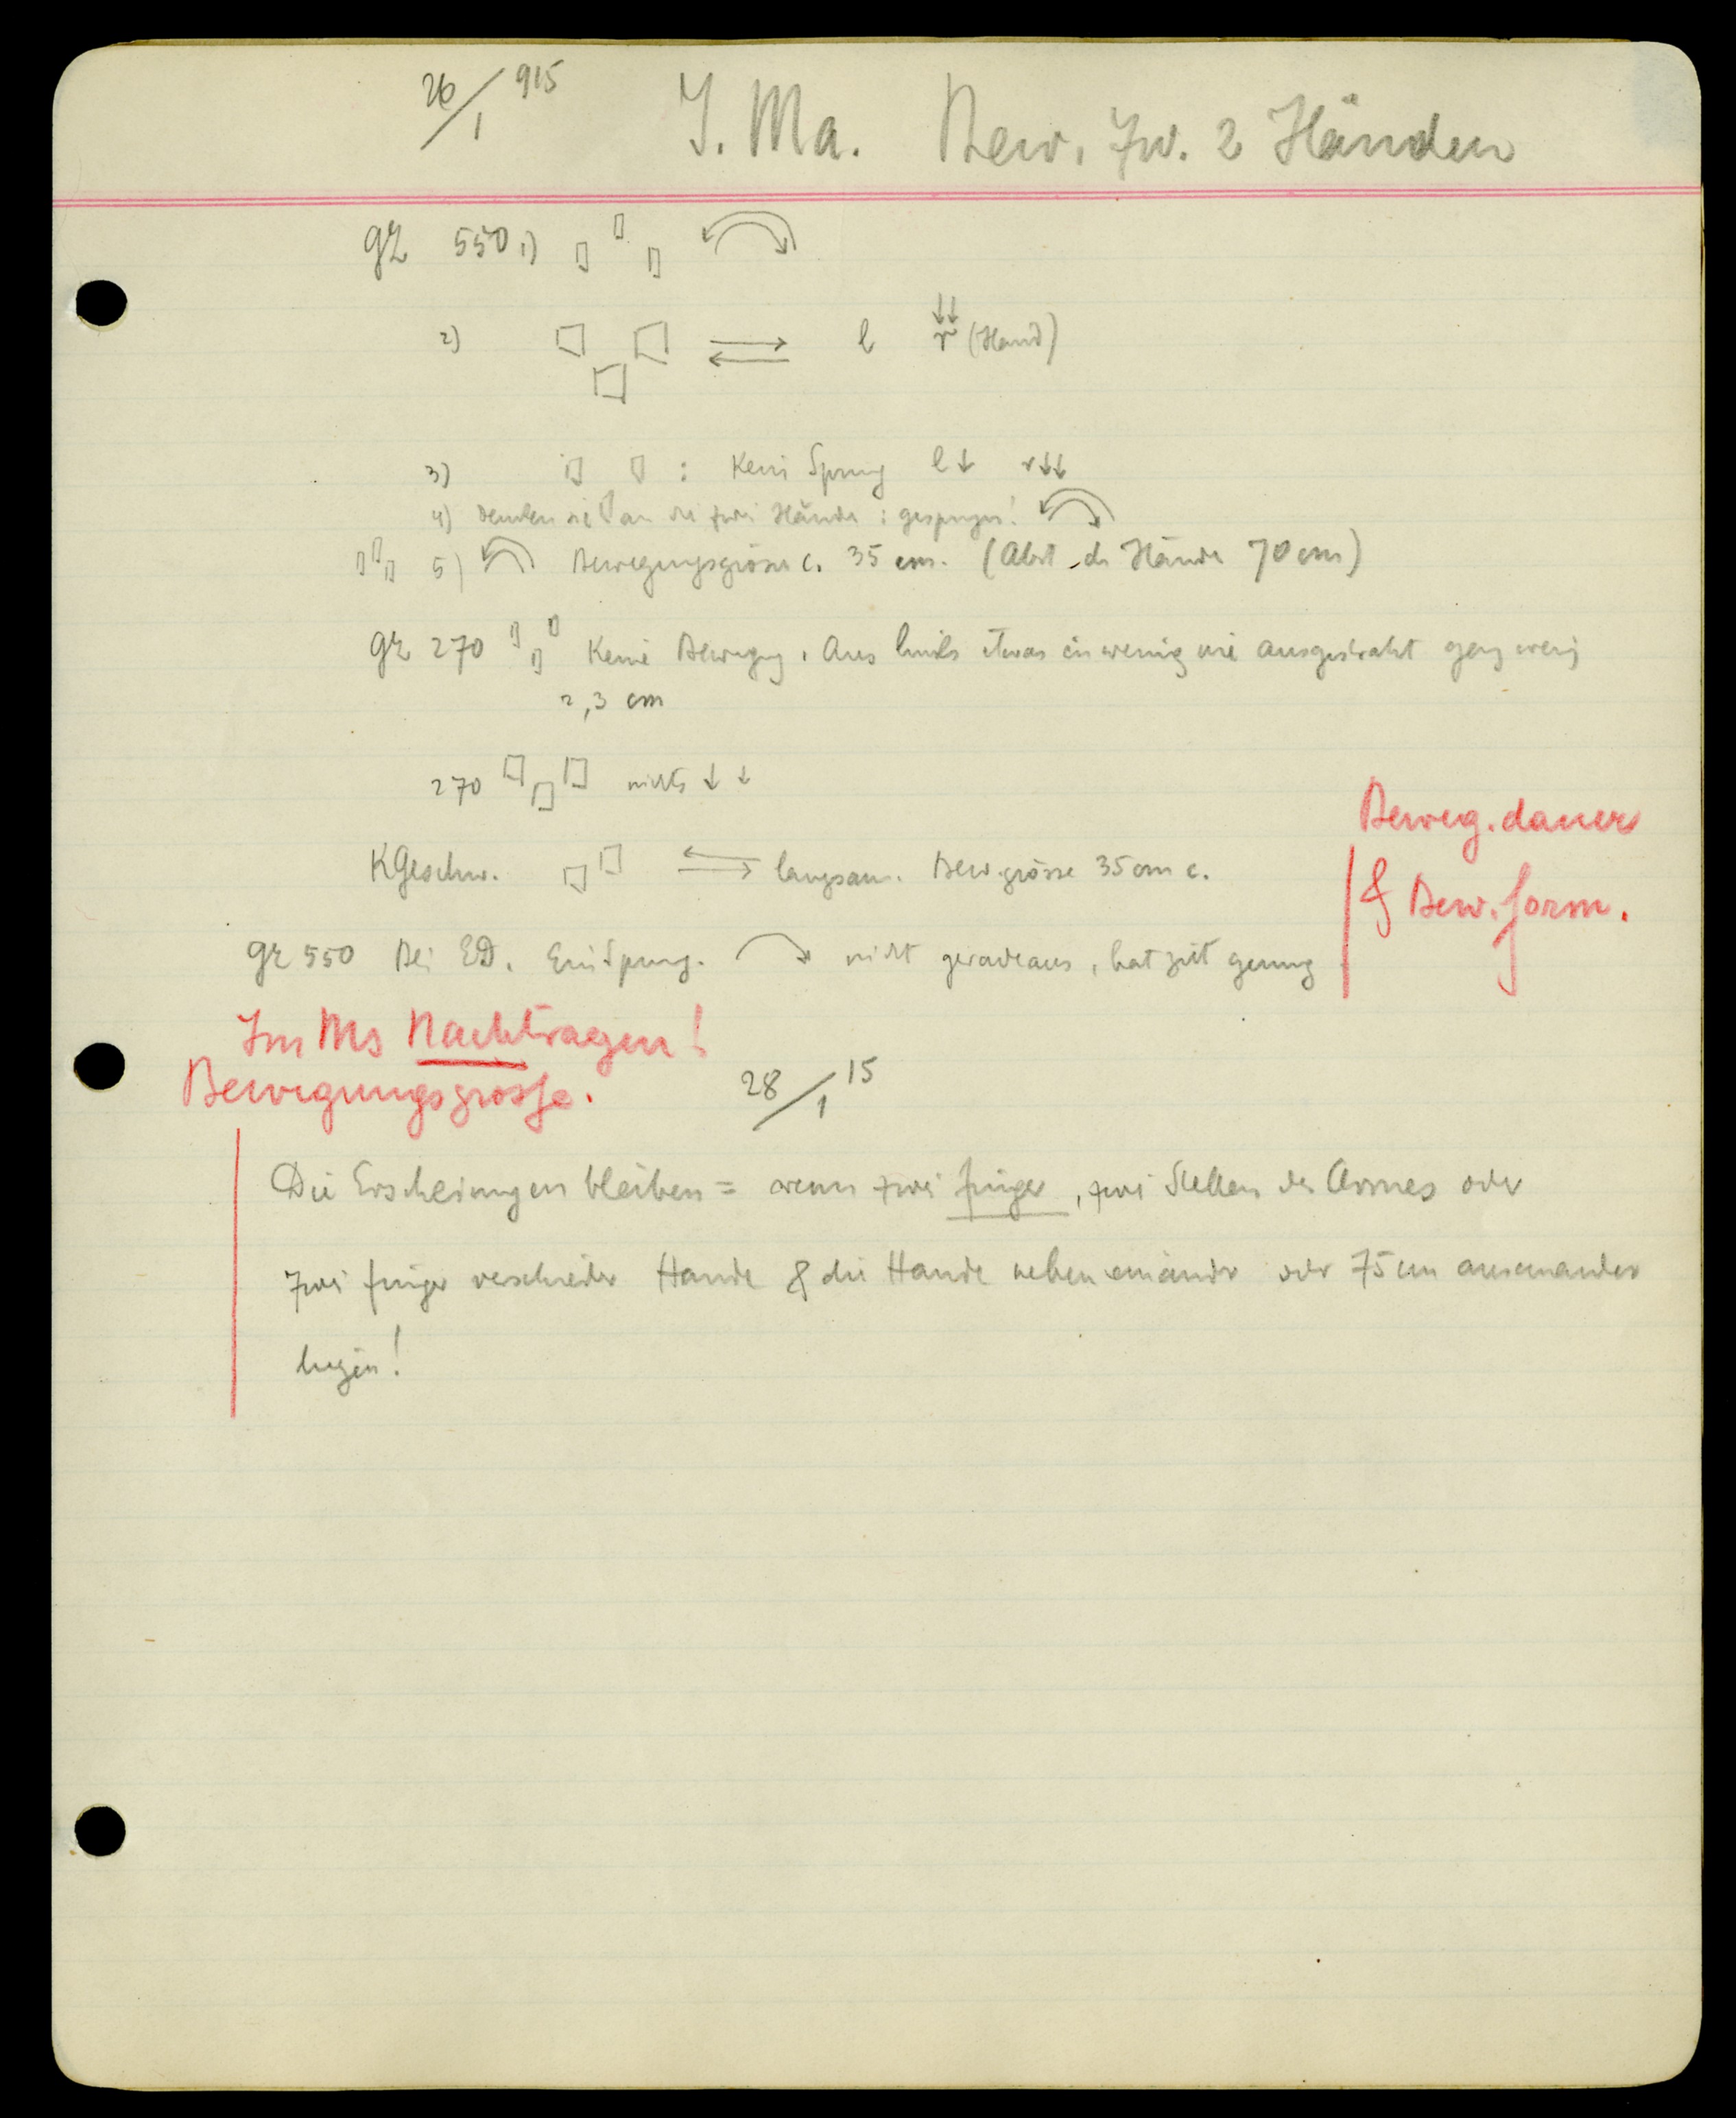 26/1 915 J. Ma. Bew. zw. 2 Händen
gz 550 1)
2) l r (Hand)
3) : Kein Sprung l↓ r↓↓
4) denken sie an die zwei Hände : gesprungen!
5) Bewegungsgrösse c. 35 cm. (Abst. der Hände 70 cm)
gz 270 Keine Bewegung. Aus links etwas ein wenig wie ausgestrahlt ganz wenig
2,3 cm
270 nichts ↓ ↓
Beweg.dauer
KGeschw. langsam. Bew.grösse 35 cm c.
& Bew.form.
gz 550 Bei ED. Ein Sprung. nicht geradeaus, hat zeit genug
Im Ms Nachtragen!
Bewegungsgrösse.
28/1 15
Die Erscheinungen bleiben = wenn zwei finger, zwi Stellen des Armes oder
zwei finger verschieder Hande & die Hande neben einander oder 75 cm auseinander
liegen!